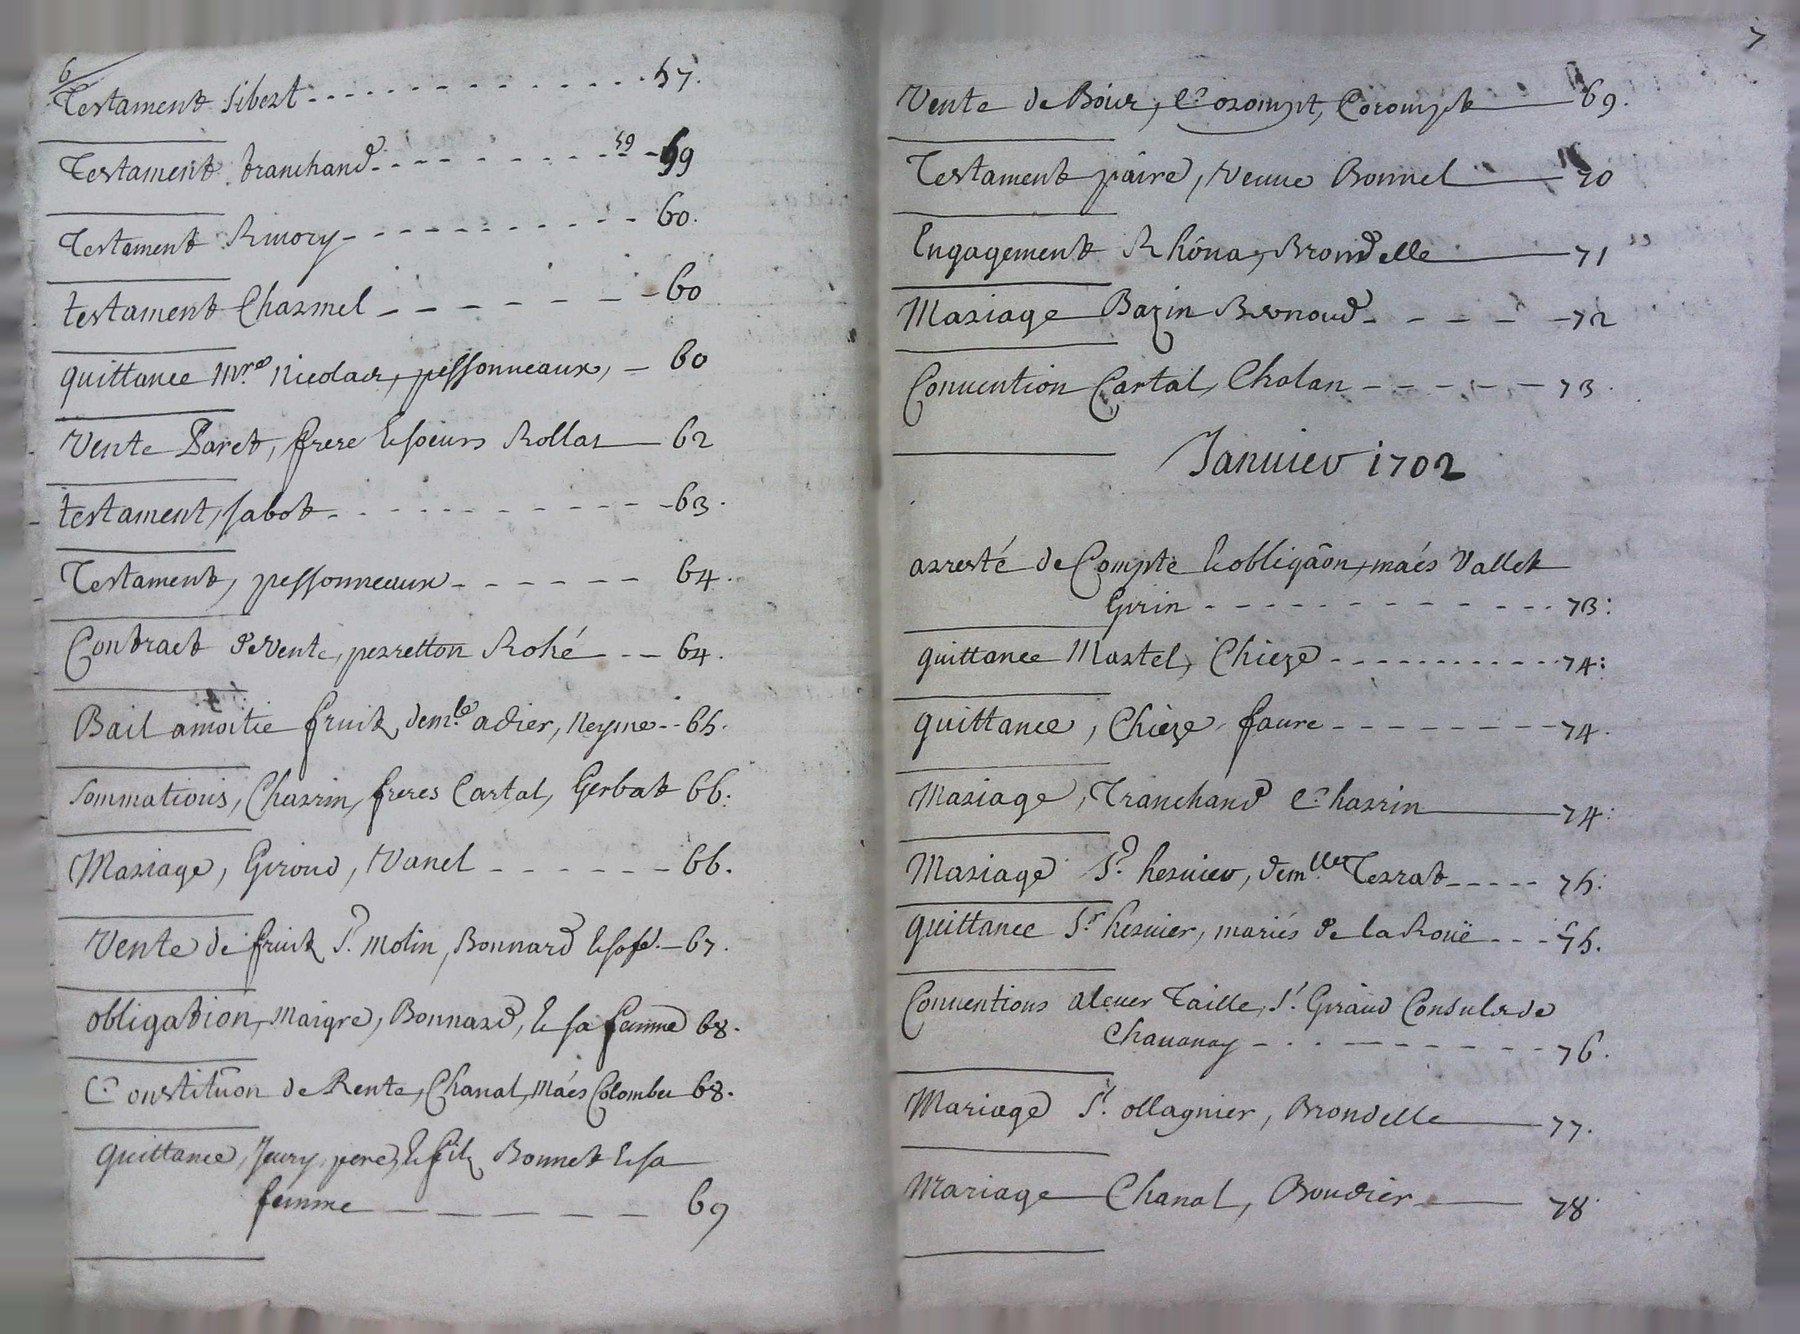 6
Testament Sibert - - - - - - - - - - - - 57.
Testament tranchand - - - - - - - - 59 - 59
Testament Rivory - - - - - - - - - 60.
testament Charmel - - - - - - - 60
quittance Mre Nicolas, pessonneaux, - 60
Vente Paret, frere & soeurs Rollat — 62
testament, sabot - - - - - - - - - - 63.
Testament, pessonneaux - - - - - - 64.
Contract de vente, perretton Rohé - - - 64.
Bail amoitie fruit, demle adier, Neyme - - 65.
Sommations, Charrin, freres Cartal, Gerbat 66.
Mariage, Giroud, Vanel - - - - - - 66.
Vente de fruit Sr. Molin, Bonnard & sa fe. — 67.
obligation, Maigre, Bonnard, & sa femme 68.
Constitūon de Rente, Chanal, Maés Colombet 68.
quittance, Jeury, pere, & fils, Bonnet & sa
femme - - - - - - 69
7
Vente de Bois, Corompt, Corompt — 69.
Testament paire, Veuve Bonnel — 70
Engagement Rhôna, Brondelle — 71
Mariage Bazin Bernoud - - - - - 72
Convention Cartal, Chalan - - - - - 73.
Janvier 1702
arresté de Compte & obligâon, maés Vallet
Girin - - - - - - - - - - - - 73:
quittance Martel, Chieze - - - - - - - - - - - - 74:
quittance, Chièze, faure - - - - - - - - 74.
Mariage, Tranchand Charrin — 74:
Mariage Sr. hervier, demlle Terrat - - - - - 75:
quittance Sr hervier, mariés de la Roüe - - - 75.
Conventions alever Taille, Sr. Giraud Consul de
Chavanay - - - - - - - - - - 76.
Mariage Sr. ollagnier, Brondelle — 77.
Mariage Chanal, Boudier — 78.